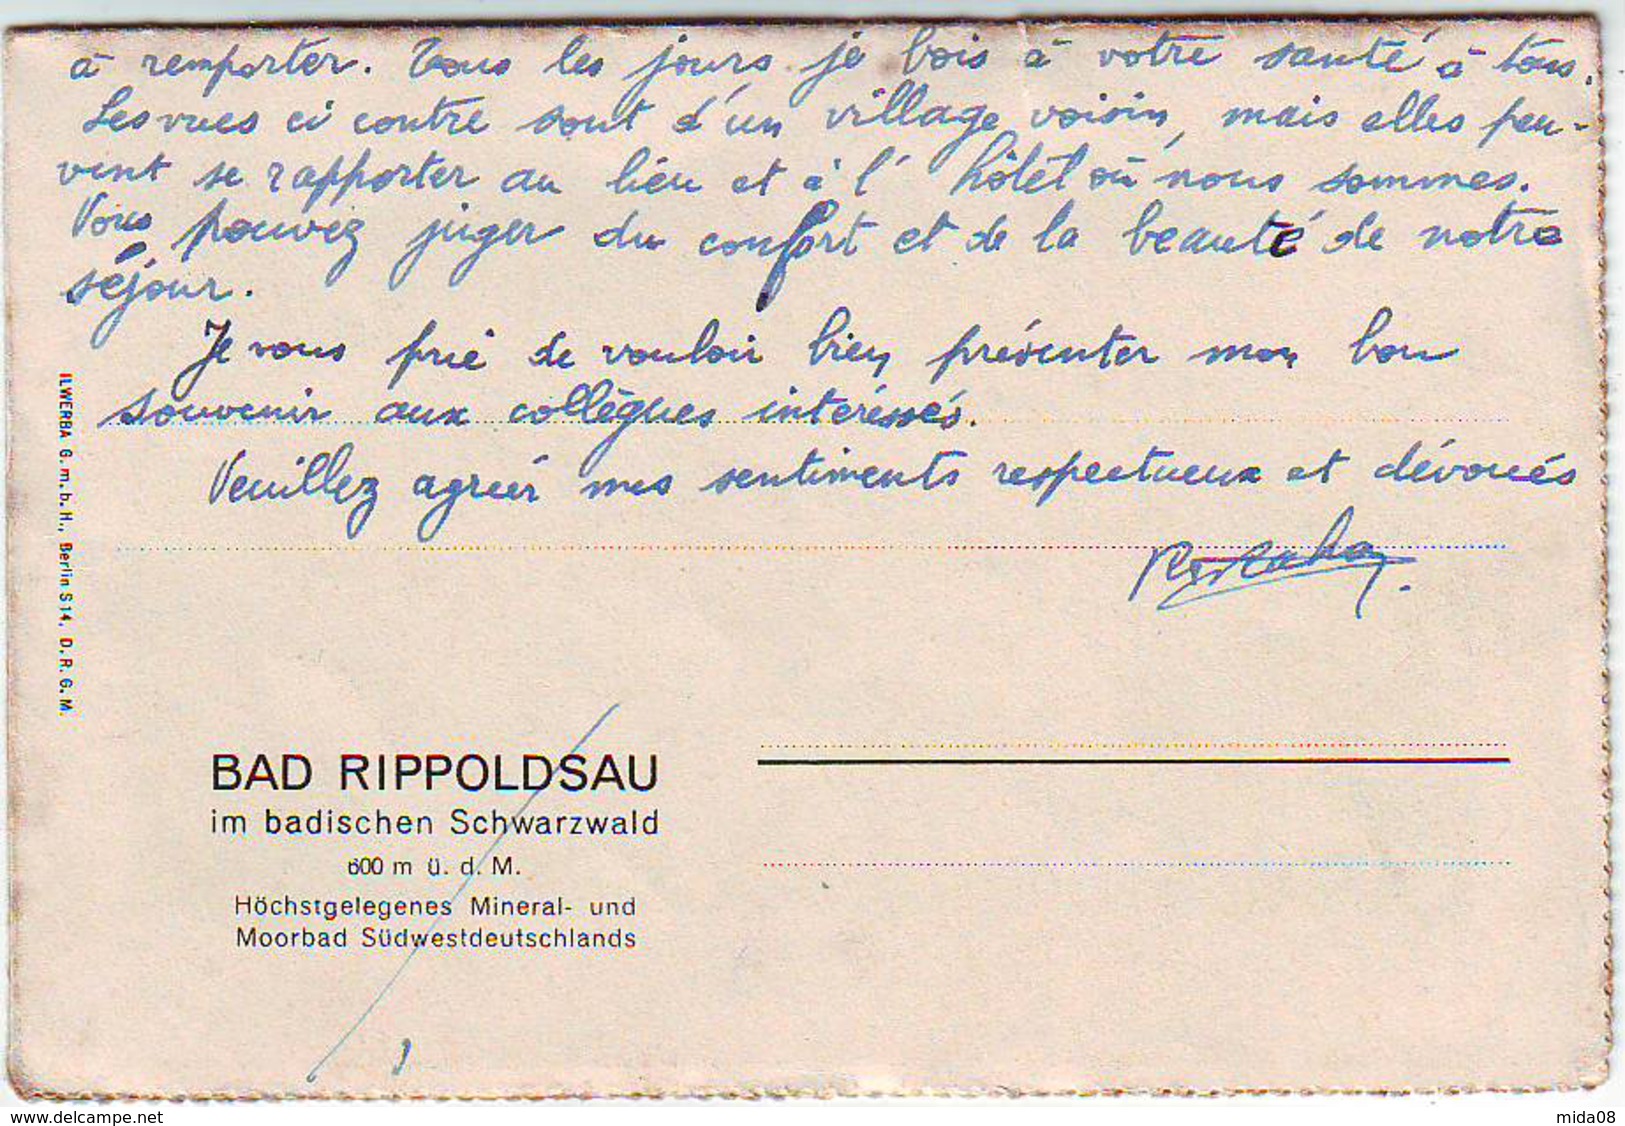 à remporter. Tous les jours je bois à votre santé à tous.
Les vues ci contre sont d'un village voisin, mais elles peu-
vent se rapporter au lieu et à l'hôtel où nous sommes.
Vous pouvez juger du confort et de la beauté de notre
séjour.
Je vous prie de vouloir bien présenter mon bon
souvenir aux collègues interéssés.
Veuillez agréer mes sentiments respectueux et dévoués
ILWERBA G. m. b. H., Berlin S 14, D. R. G. M.
BAD RIPPOLDSAU
im badischen Schwarzwald
600 m ü. d. M.
Höchstgelegenes Mineral- und
Moorbad Südwestdeutschlands
www.delcampe.net
mida08